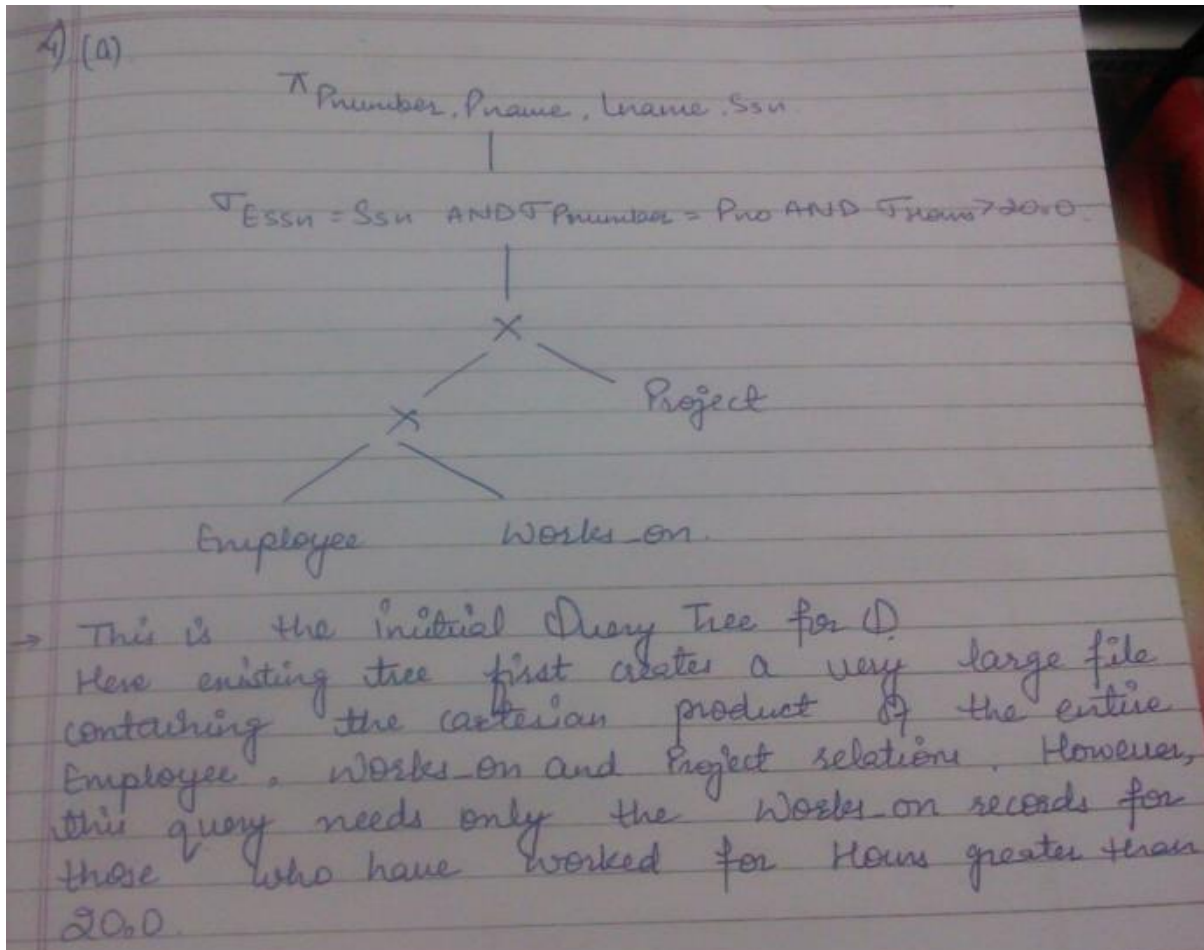 4) (a)
π Pnumber, Pname, Lname, Ssn
σ Essn = Ssn AND σ Pnumber = Pno AND σ Hours > 20.0
×
× Project
Employee Works_on.
→ This is the initial Query Tree for Q.
Here existing tree first creates a very large file
containing the cartesian product of the entire
Employee, Works_on and Project relation. However,
this query needs only the Works_on records for
those who have worked for Hours greater than
20.0.